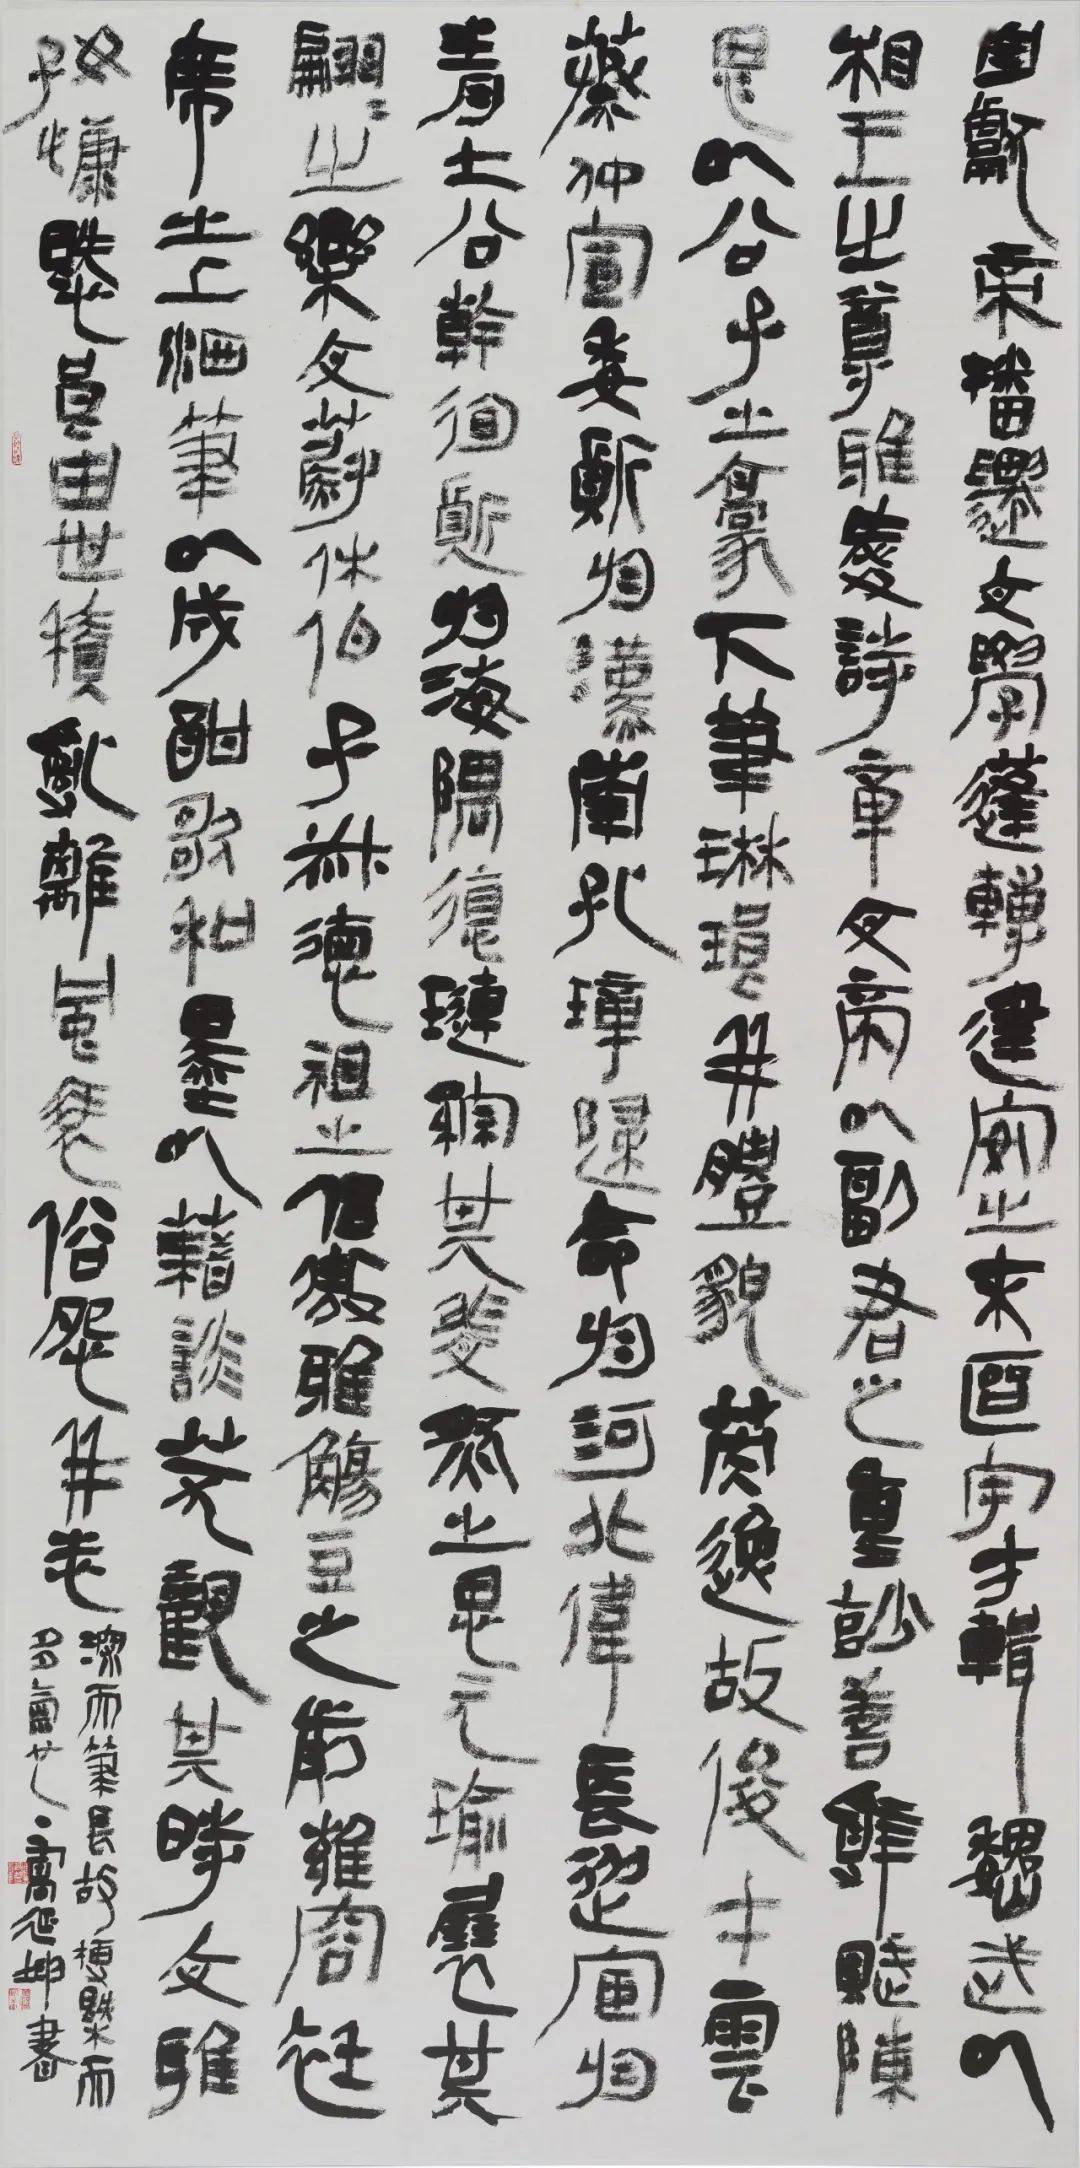 自獻帝播遷文學蓬轉建安之末區宇方輯魏武以
相王之尊雅愛詩章文帝以副君之重妙善辭賦陳
思以公子之豪下筆琳瑯並體貌英逸故俊才雲
蒸仲宣委質於漢南孔璋歸命於河北偉長從宦於
青土公幹徇質於海隅德璉綜其斐然之思元瑜展其
翩翩之樂文蔚休伯子叔德祖之侶傲雅觴豆之前雍容衽
席之上洒筆以成酣歌和墨以藉談笑觀其時文雅
好慷慨良由世積亂離風衰俗怨並志
深而筆長故梗概而
多氣也高延坤書